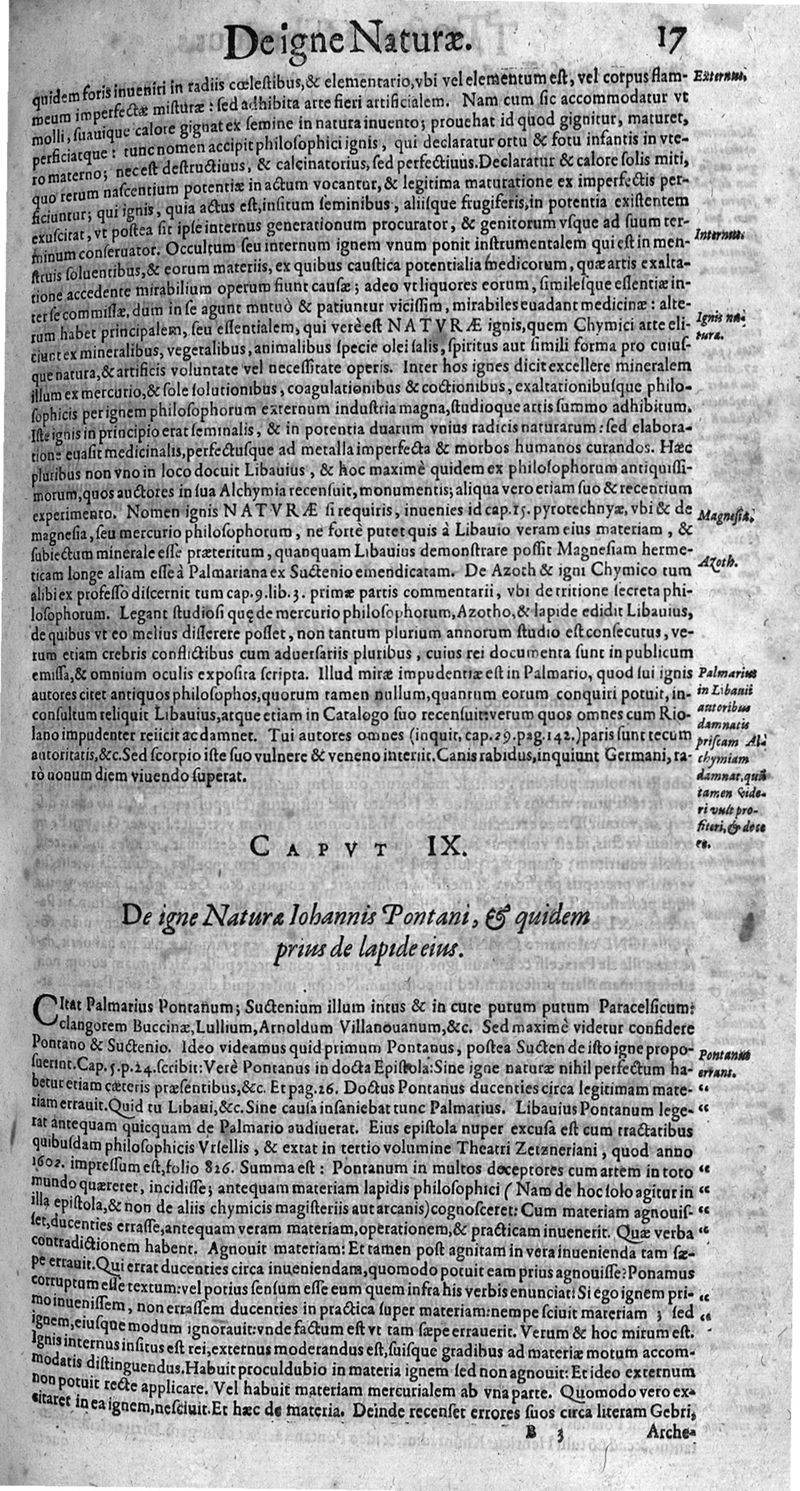 De igne Naturæ. 17
quidem foris inueniri in radiis cœlestibus, & elementario, vbi vel elementum est, vel corpus flam- Externus,
meum imperfectæ misturæ: sed adhibita arte fieri artificialem. Nam cum sic accommodatur vt
molli, suauique calore gignat ex semine in natura inuento; prouehat id quod gignitur, maturet,
perficiatque: tunc nomen accipit philosophici ignis, qui declaratur ortu & fotu infantis in vte-
ro materno; nec est destructiuus, & calcinatorius, sed perfectiuus. Declaratur & calore solis miti,
quo rerum nascentium potentiæ in actum vocantur, & legitima maturatione ex imperfectis per-
ficiuntur; qui ignis, quia actus est, insitum seminibus, aliisque frugiferis, in potentia existentem
exuscitat, vt postea sit ipse internus generationum procurator, & genitorum vsque ad suum ter-
minum conseruator. Occultum seu internum ignem vnum ponit instrumentalem qui est in men- Internus.
struis soluentibus, & eorum materiis, ex quibus caustica potentialia medicorum, quæ artis exalta-
tione accedente mirabilium operum fiunt causæ; adeo vt liquores eorum, similesque essentiæ in-
ter se commissæ, dum in se agunt mutuò & patiuntur vicissim, mirabiles euadant medicinæ: alte-
rum habet principalem, seu essentialem, qui verè est NATVRÆ ignis, quem Chymici arte eli- Ignis na-
ciunt ex mineralibus, vegetalibus, animalibus specie olei salis, spiritus aut simili forma pro cuius- tura.
que natura, & artificis voluntate vel necessitate operis. Inter hos ignes dicit excellere mineralem
illum ex mercurio, & sole solutionibus, coagulationibus & coctionibus, exaltationibusque philo-
sophicis per ignem philosophorum externum industria magna, studioque artis summo adhibitum.
Iste ignis in principio erat seminalis, & in potentia duarum vnius radicis naturarum: sed elabora-
tione euasit medicinalis, perfectusque ad metalla imperfecta & morbos humanos curandos. Hæc
pluribus non vno in loco docuit Libauius, & hoc maximè quidem ex philosophorum antiquissi-
morum, quos auctores in sua Alchymia recensuit, monumentis; aliqua vero etiam suo & recentium
experimento. Nomen ignis NATVRÆ si requiris, inuenies id cap. 15. pyrotechnyæ, vbi & de Magnesia,
magnesia, seu mercurio philosophorum, ne fortè putet quis à Libauio veram eius materiam, &
subiectum minerale esse præteritum, quanquam Libauius demonstrare possit Magnesiam herme-
ticam longe aliam esse à Palmariana ex Suctenio emendicatam. De Azoth & igni Chymico tum Azoth.
alibi ex professo discernit tum cap. 9. lib. 3. primæ partis commentarii, vbi de tritione secreta phi-
losophorum. Legant studiosi quę de mercurio philosophorum, Azotho, & lapide edidit Libauius,
de quibus vt eo melius disserere posset, non tantum plurium annorum studio est consecutus, ve-
rum etiam crebris conflictibus cum aduersariis pluribus, cuius rei documenta sunt in publicum
emissa, & omnium oculis exposita scripta. Illud miræ impudentiæ est in Palmario, quod sui ignis Palmarius
autores citet antiquos philosophos, quorum tamen nullum, quantum eorum conquiri potuit, in- in Libauii
consultum reliquit Libauius, atque etiam in Catalogo suo recensuit: verum quos omnes cum Rio- autoribus
lano impudenter reiicit ac damnet. Tui autores omnes (inquit, cap. 29. pag. 142.) paris sunt tecum damnatis
autoritatis, &c. Sed scorpio iste suo vulnere & veneno interiit. Canis rabidus, inquiunt Germani, ra- priscam Al-
rò nonum diem viuendo superat. chymiam
damnat, quã
tamen vide-
ri vult pro-
fiteri, & doce
re.
CAPVT IX.
De igne Naturæ Iohannis Pontani, & quidem
prius de lapide eius.
CItat Palmarius Pontanum; Suctenium illum intus & in cute purum putum Paracelsicum:
clangorem Buccinæ, Lullium, Arnoldum Villanouanum, &c. Sed maximè videtur confidere
Pontano & Suctenio. Ideo videamus quid primum Pontanus, postea Sucten de isto igne propo- Pontanus
suerint. Cap. 5. p. 24. scribit: Verè Pontanus in docta Epistola: Sine igne naturæ nihil perfectum ha- errans.
betur etiam cæteris præsentibus, &c. Et pag. 26. Doctus Pontanus ducenties circa legitimam mate- “
riam errauit. Quid tu Libaui, &c. Sine causa insaniebat tunc Palmarius. Libauius Pontanum lege- “
rat antequam quicquam de Palmario audiuerat. Eius epistola nuper excusa est cum tractatibus
quibusdam philosophicis Vrsellis, & extat in tertio volumine Theatri Zetzneriani, quod anno
1602. impressum est, folio 826. Summa est: Pontanum in multos deceptores cum artem in toto “
mundo quæreret, incidisse; antequam materiam lapidis philosophici (Nam de hoc solo agitur in “
illa epistola, & non de aliis chymicis magisteriis aut arcanis) cognosceret: Cum materiam agnouis- “
set, ducenties errasse, antequam veram materiam, operationem, & practicam inuenerit. Quæ verba “
contradictionem habent. Agnouit materiam: Et tamen post agnitam in vera inuenienda tam sæ-
pe errauit. Qui errat ducenties circa inueniendam, quomodo potuit eam prius agnouisse? Ponamus
corruptum esse textum: vel potius sensum esse eum quem infra his verbis enunciat: Si ego ignem pri- “
mo inuenissem, non errassem ducenties in practica super materiam: nempe sciuit materiam; sed “
ignem, eiusque modum ignorauit: vnde factum est vt tam sæpe errauerit. Verum & hoc mirum est.
Ignis internus insitus est rei, externus moderandus est, suisque gradibus ad materiæ motum accom-
modatis distinguendus. Habuit proculdubio in materia ignem sed non agnouit: Et ideo externum
non potuit recte applicare. Vel habuit materiam mercurialem ab vna parte. Quomodo vero ex-
citaret in ea ignem, nesciuit. Et hæc de materia. Deinde recenset errores suos circa literam Gebri,
B 3 Arche-